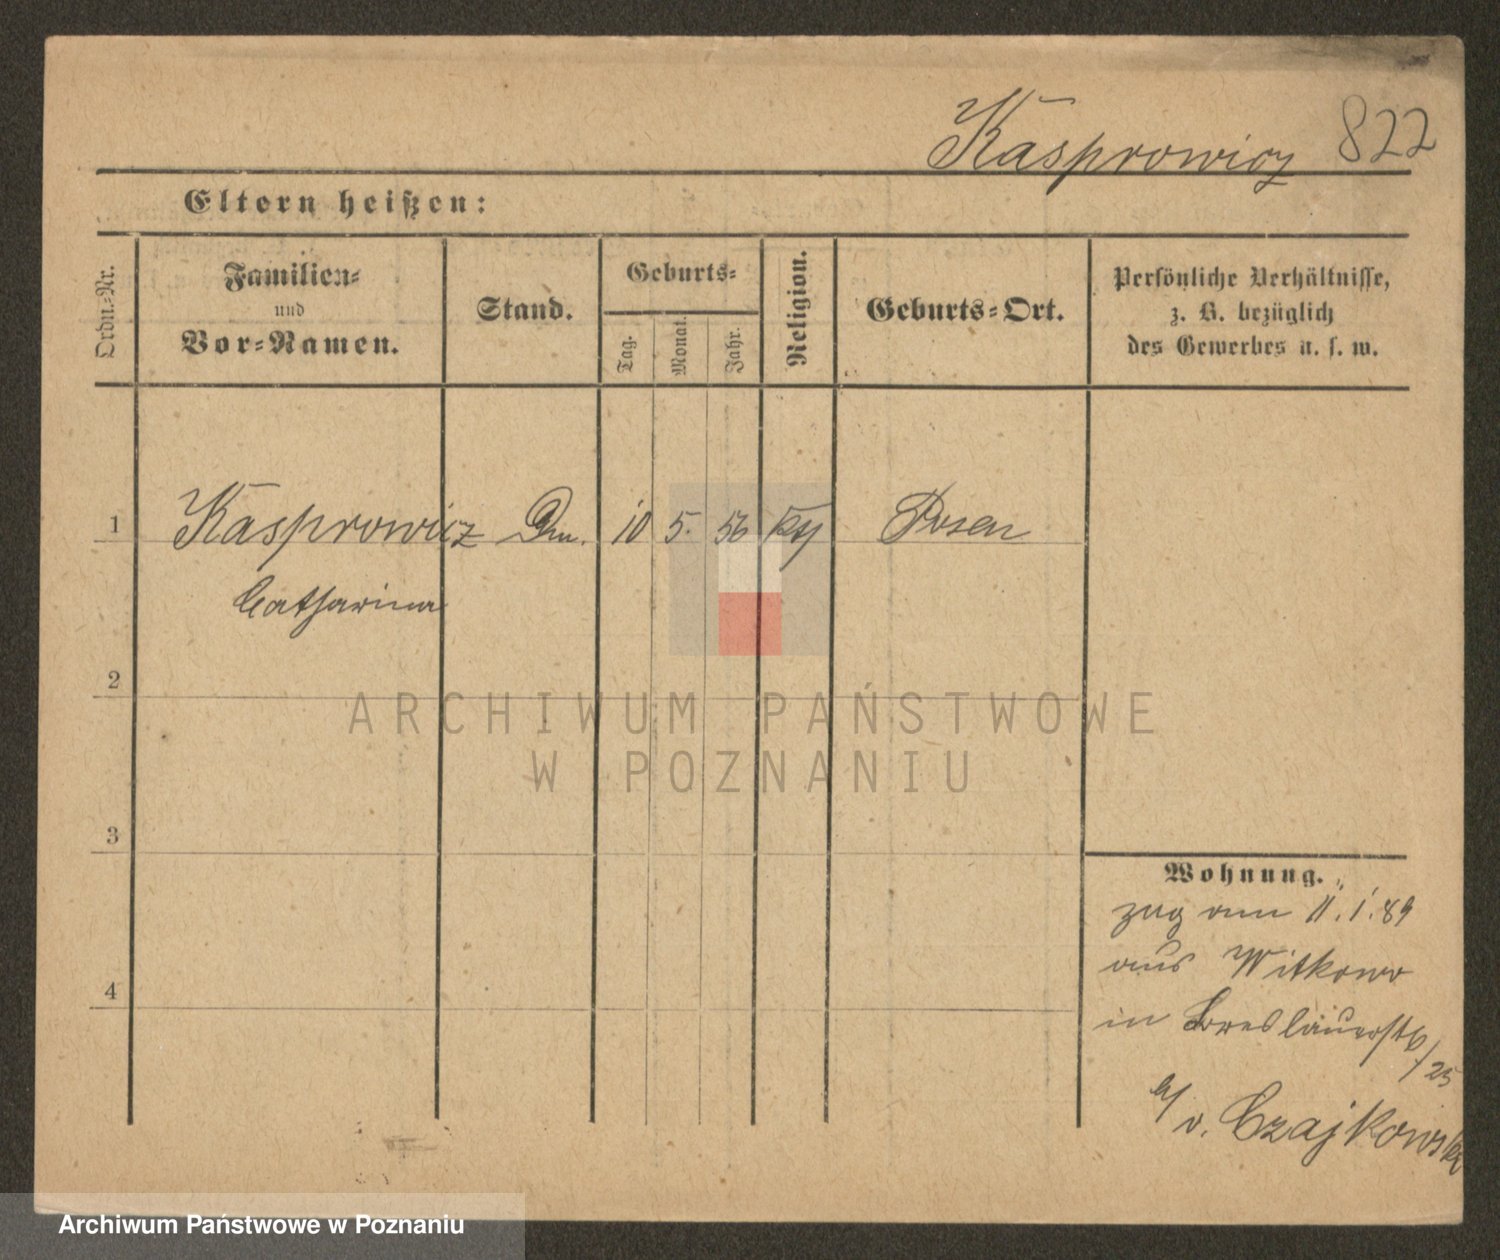 Kasprowicz 822
Eltern heißen:
Ordn.-Nr.
Familien-
und
Vor-Namen.
Stand.
Geburts-
Tag.
Monat.
Jahr.
Religion.
Geburts-Ort.
Persönliche Verhältnisse,
z. B. bezüglich
des Gewerbes u. s. w.
1 Kasprowicz 10 5. 56 kth Posen
Catharina
2
3
4
Wohnung.
zug am 11.1.89
aus Witkowo
in Breslauerst
/25
b/ v. Czajkowski
ARCHIWUM PAŃSTWOWE
W POZNANIU
Archiwum Państwowe w Poznaniu